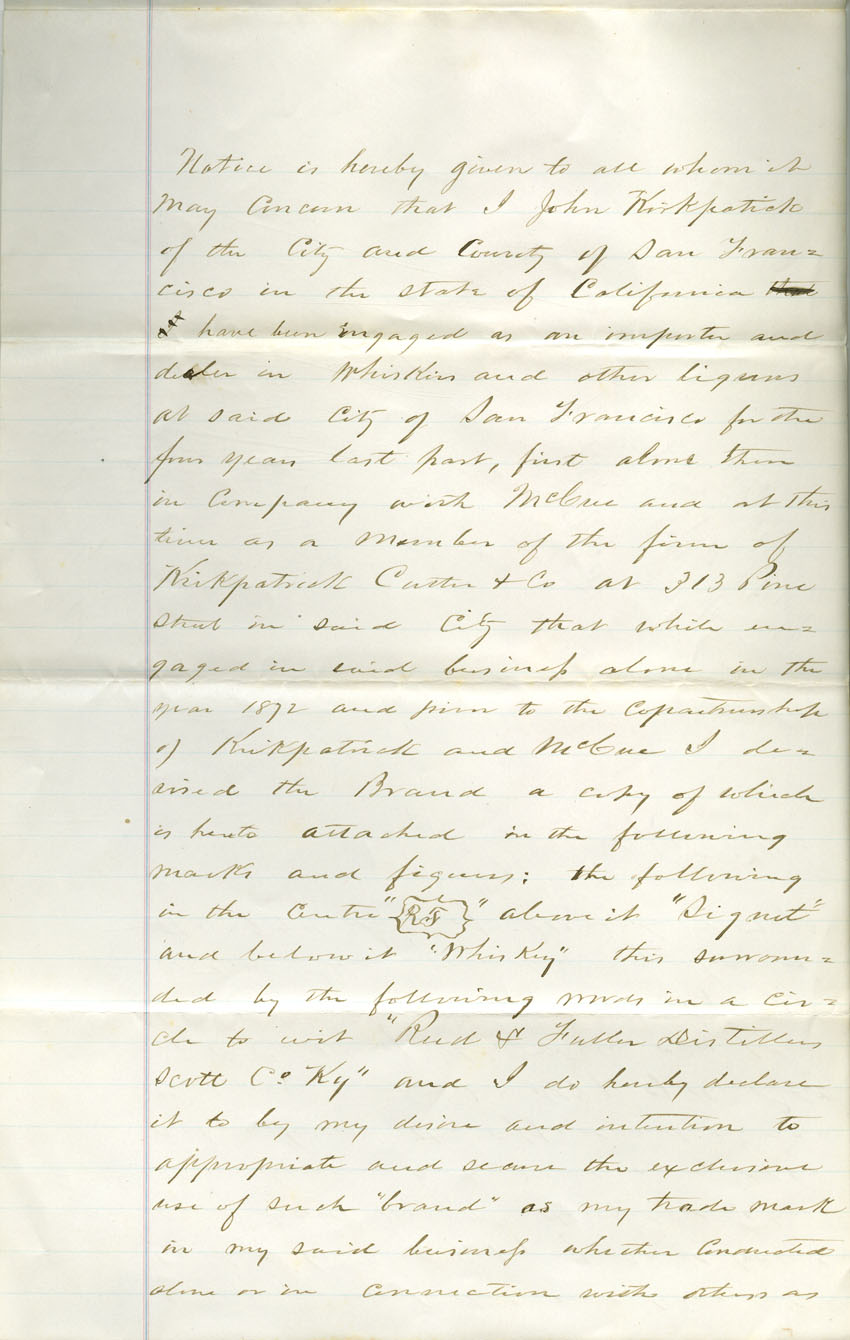 Notice is hereby given to all whom it
may Concern that I John Kirkpatick
of the City and County of San Fran=
cisco in the state of California that
have been engaged as an importer and
dealer in Whiskies and other liquors
at said City of San Francisco for the
four years last past, first alone then
in Company with McCue and at this
time as a member of the firm of
Kirkpatrick Cutter & Co at 313 Pine
street in said City that while en=
gaged in said business alone in the
year 1872 and prior to the Copartnership
of Kirkpatrick and McCue I de=
vised the Brand a copy of which
is hereto attached in the following
marks and figures; the following
in the Centre "R&F" above it "Signet"
and below it "Whiskey" this surroun=
ded by the following words in a cir=
cle to wit "Reed & Fuller Distillers
Scott Co Ky" and I do hereby declare
it to by my desire and intention to
appropriate and secure the exclusive
use of such "brand" as my trade mark
in my said business whether Conducted
alone or in connection with others as